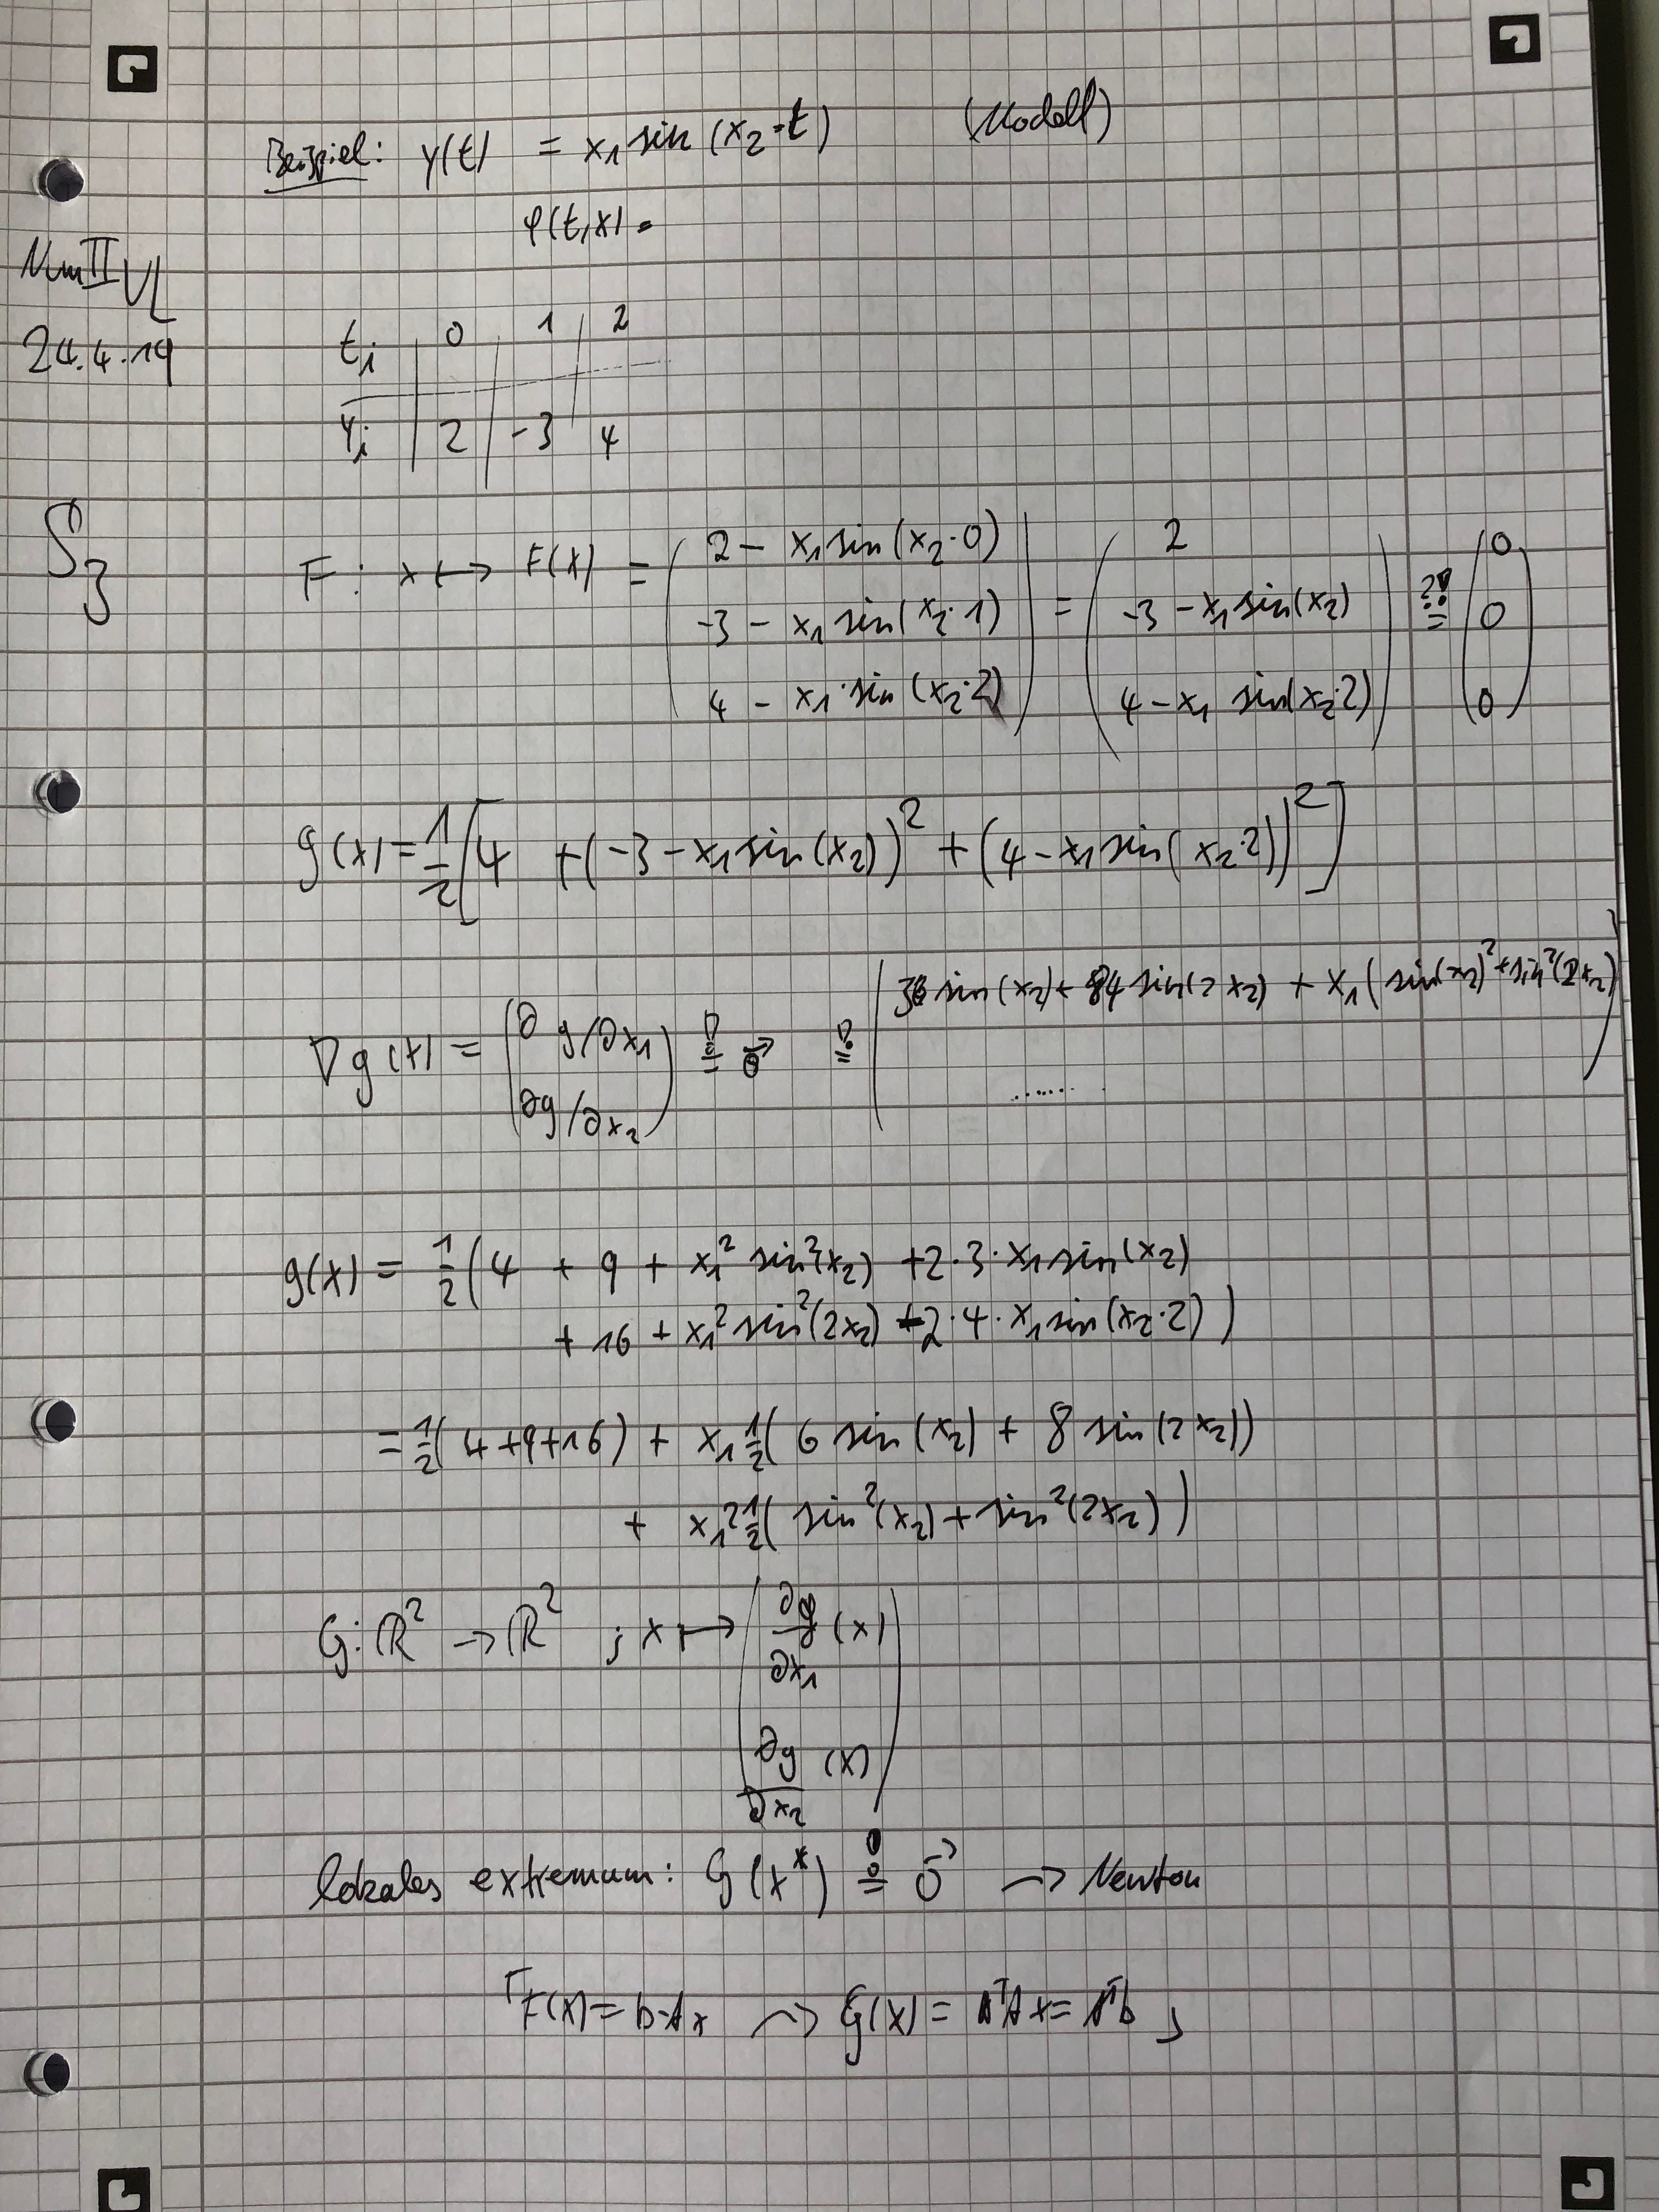 Beispiel: y(t) = x₁ sin(x₂·t) (Modell)
φ(t,x) =
Num II VL
24.4.19
tᵢ | 0 | 1 | 2
yᵢ | 2 | -3 | 4
S3
F: x ↦ F(x) = ( 2 - x₁ sin(x₂·0) ; -3 - x₁ sin(x₂·1) ; 4 - x₁·sin(x₂·2) ) = ( 2 ; -3 - x₁ sin(x₂) ; 4 - x₁ sin(x₂·2) ) =?! ( 0 ; 0 ; 0 )
g(x) = 1/2 [4 + (-3 - x₁ sin(x₂))² + (4 - x₁ sin(x₂·2))²]
∇g(x) = ( ∂g/∂x₁ ; ∂g/∂x₂ ) =! 0⃗ =! ( 3 sin(x₂) + 4 sin(2x₂) + x₁(sin(x₂)² + sin²(2x₂) ; ...... )
g(x) = 1/2 (4 + 9 + x₁² sin²(x₂) + 2·3·x₁ sin(x₂)
+ 16 + x₁² sin²(2x₂) + 2·4·x₁ sin(x₂·2))
= 1/2 (4+9+16) + x₁ 1/2 (6 sin(x₂) + 8 sin(2x₂))
+ x₁² 1/2 (sin²(x₂) + sin²(2x₂))
G: ℝ² → ℝ² ; x ↦ ( ∂g/∂x₁ (x) ; ∂g/∂x₂ (x) )
lokales extremum: G(x*) =! 0⃗ → Newton
⌈F(x) = b-Ax → G(x) = AᵀAx = Aᵀb ⌋